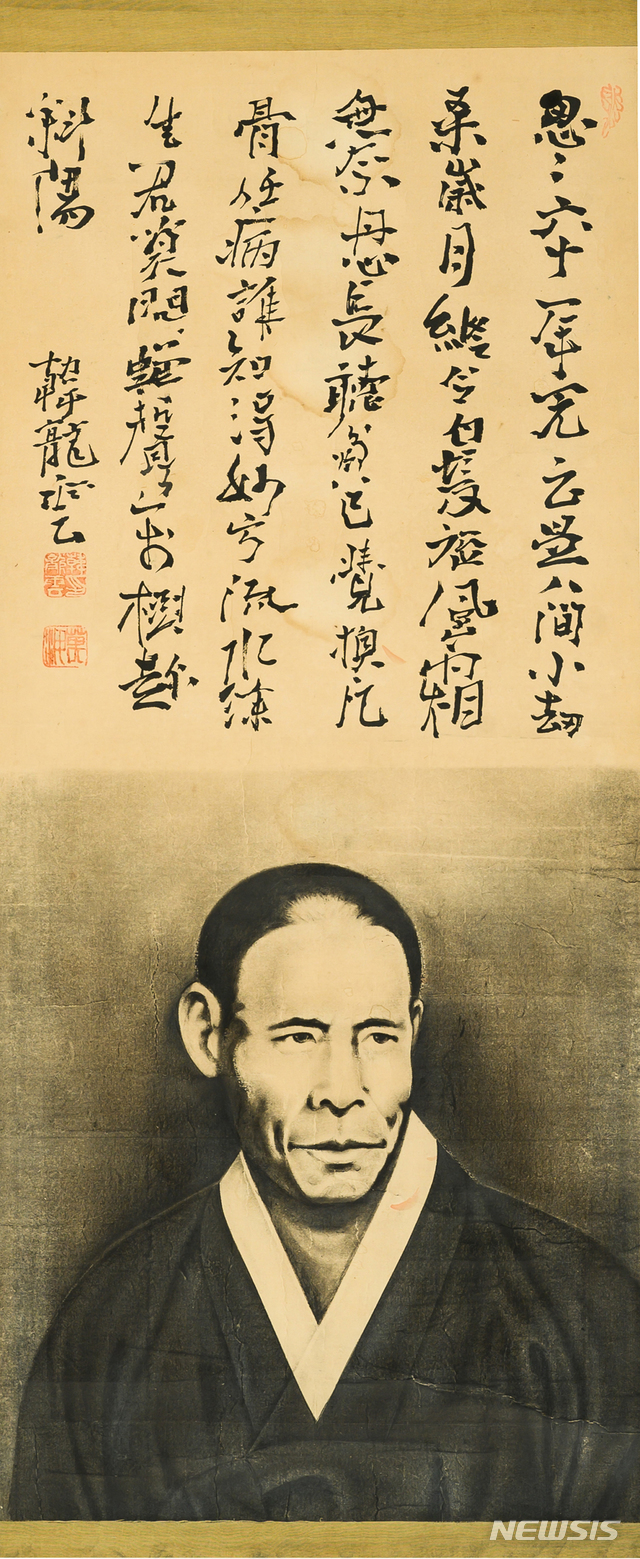 悤〻六十一年光云是人間小劫
桑歲月縱令白髮短風霜
無奈丹心長聽貧已覺換凡
骨任病誰知得妙方流水餘
生君莫問蟬聲萬樹趁
斜陽
韓龍雲
NEWSIS